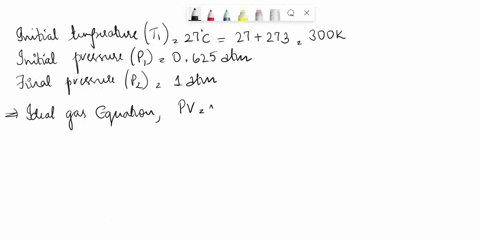 Initial temperature (T₁) = 27°C = 27 + 273 = 300K
Initial pressure (P₁) = 0.625 atm
Final pressure (P₂) = 1 atm
⇒ Ideal gas Equation, PV =